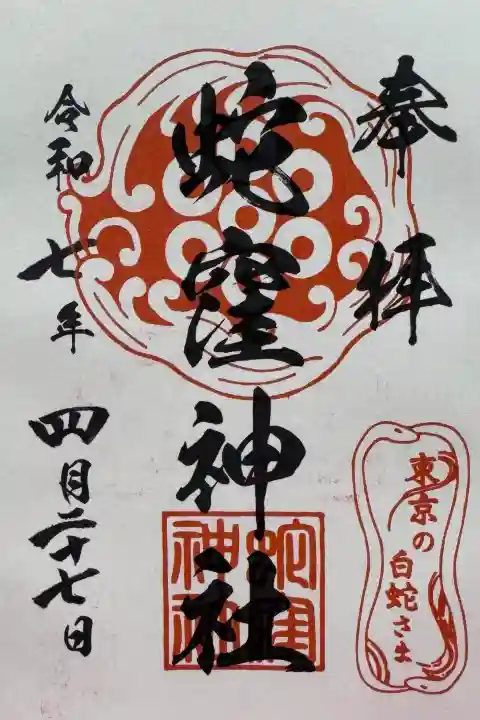 奉拝
蛇窪神社
令和七年
四月二十七日
蛇窪
神社
東京の
白蛇さま